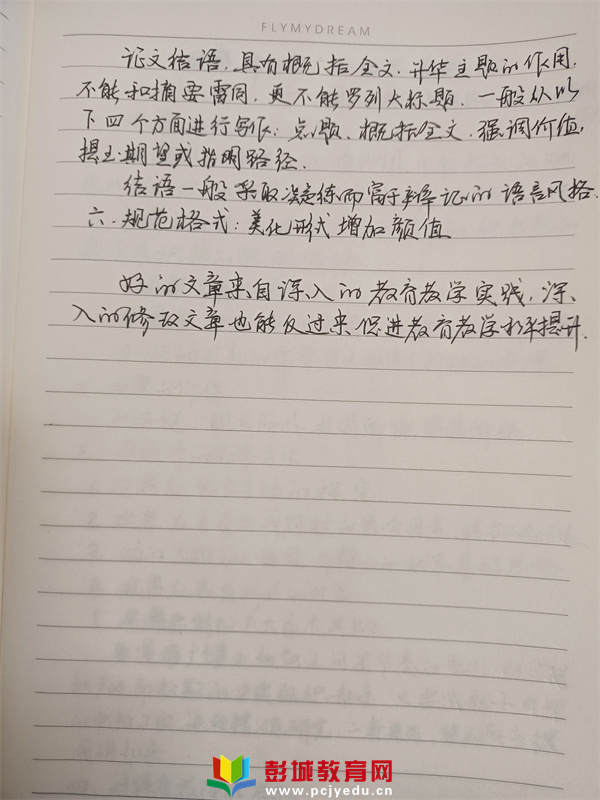 FLYMYDREAM
论文结语,具有概括全文、升华主题的作用,
不能和摘要雷同,更不能罗列大标题。一般从以
下四个方面进行写作:点题、概括全文、强调价值,
提出期望或指明路径。
结语一般采取凝练而富于辩证的语言风格。
六.规范格式:美化形式增加颜值
好的文章来自深入的教育教学实践,深
入的修改文章也能反过来促进教育教学水平提升.
彭城教育网
www.pcjyedu.cn